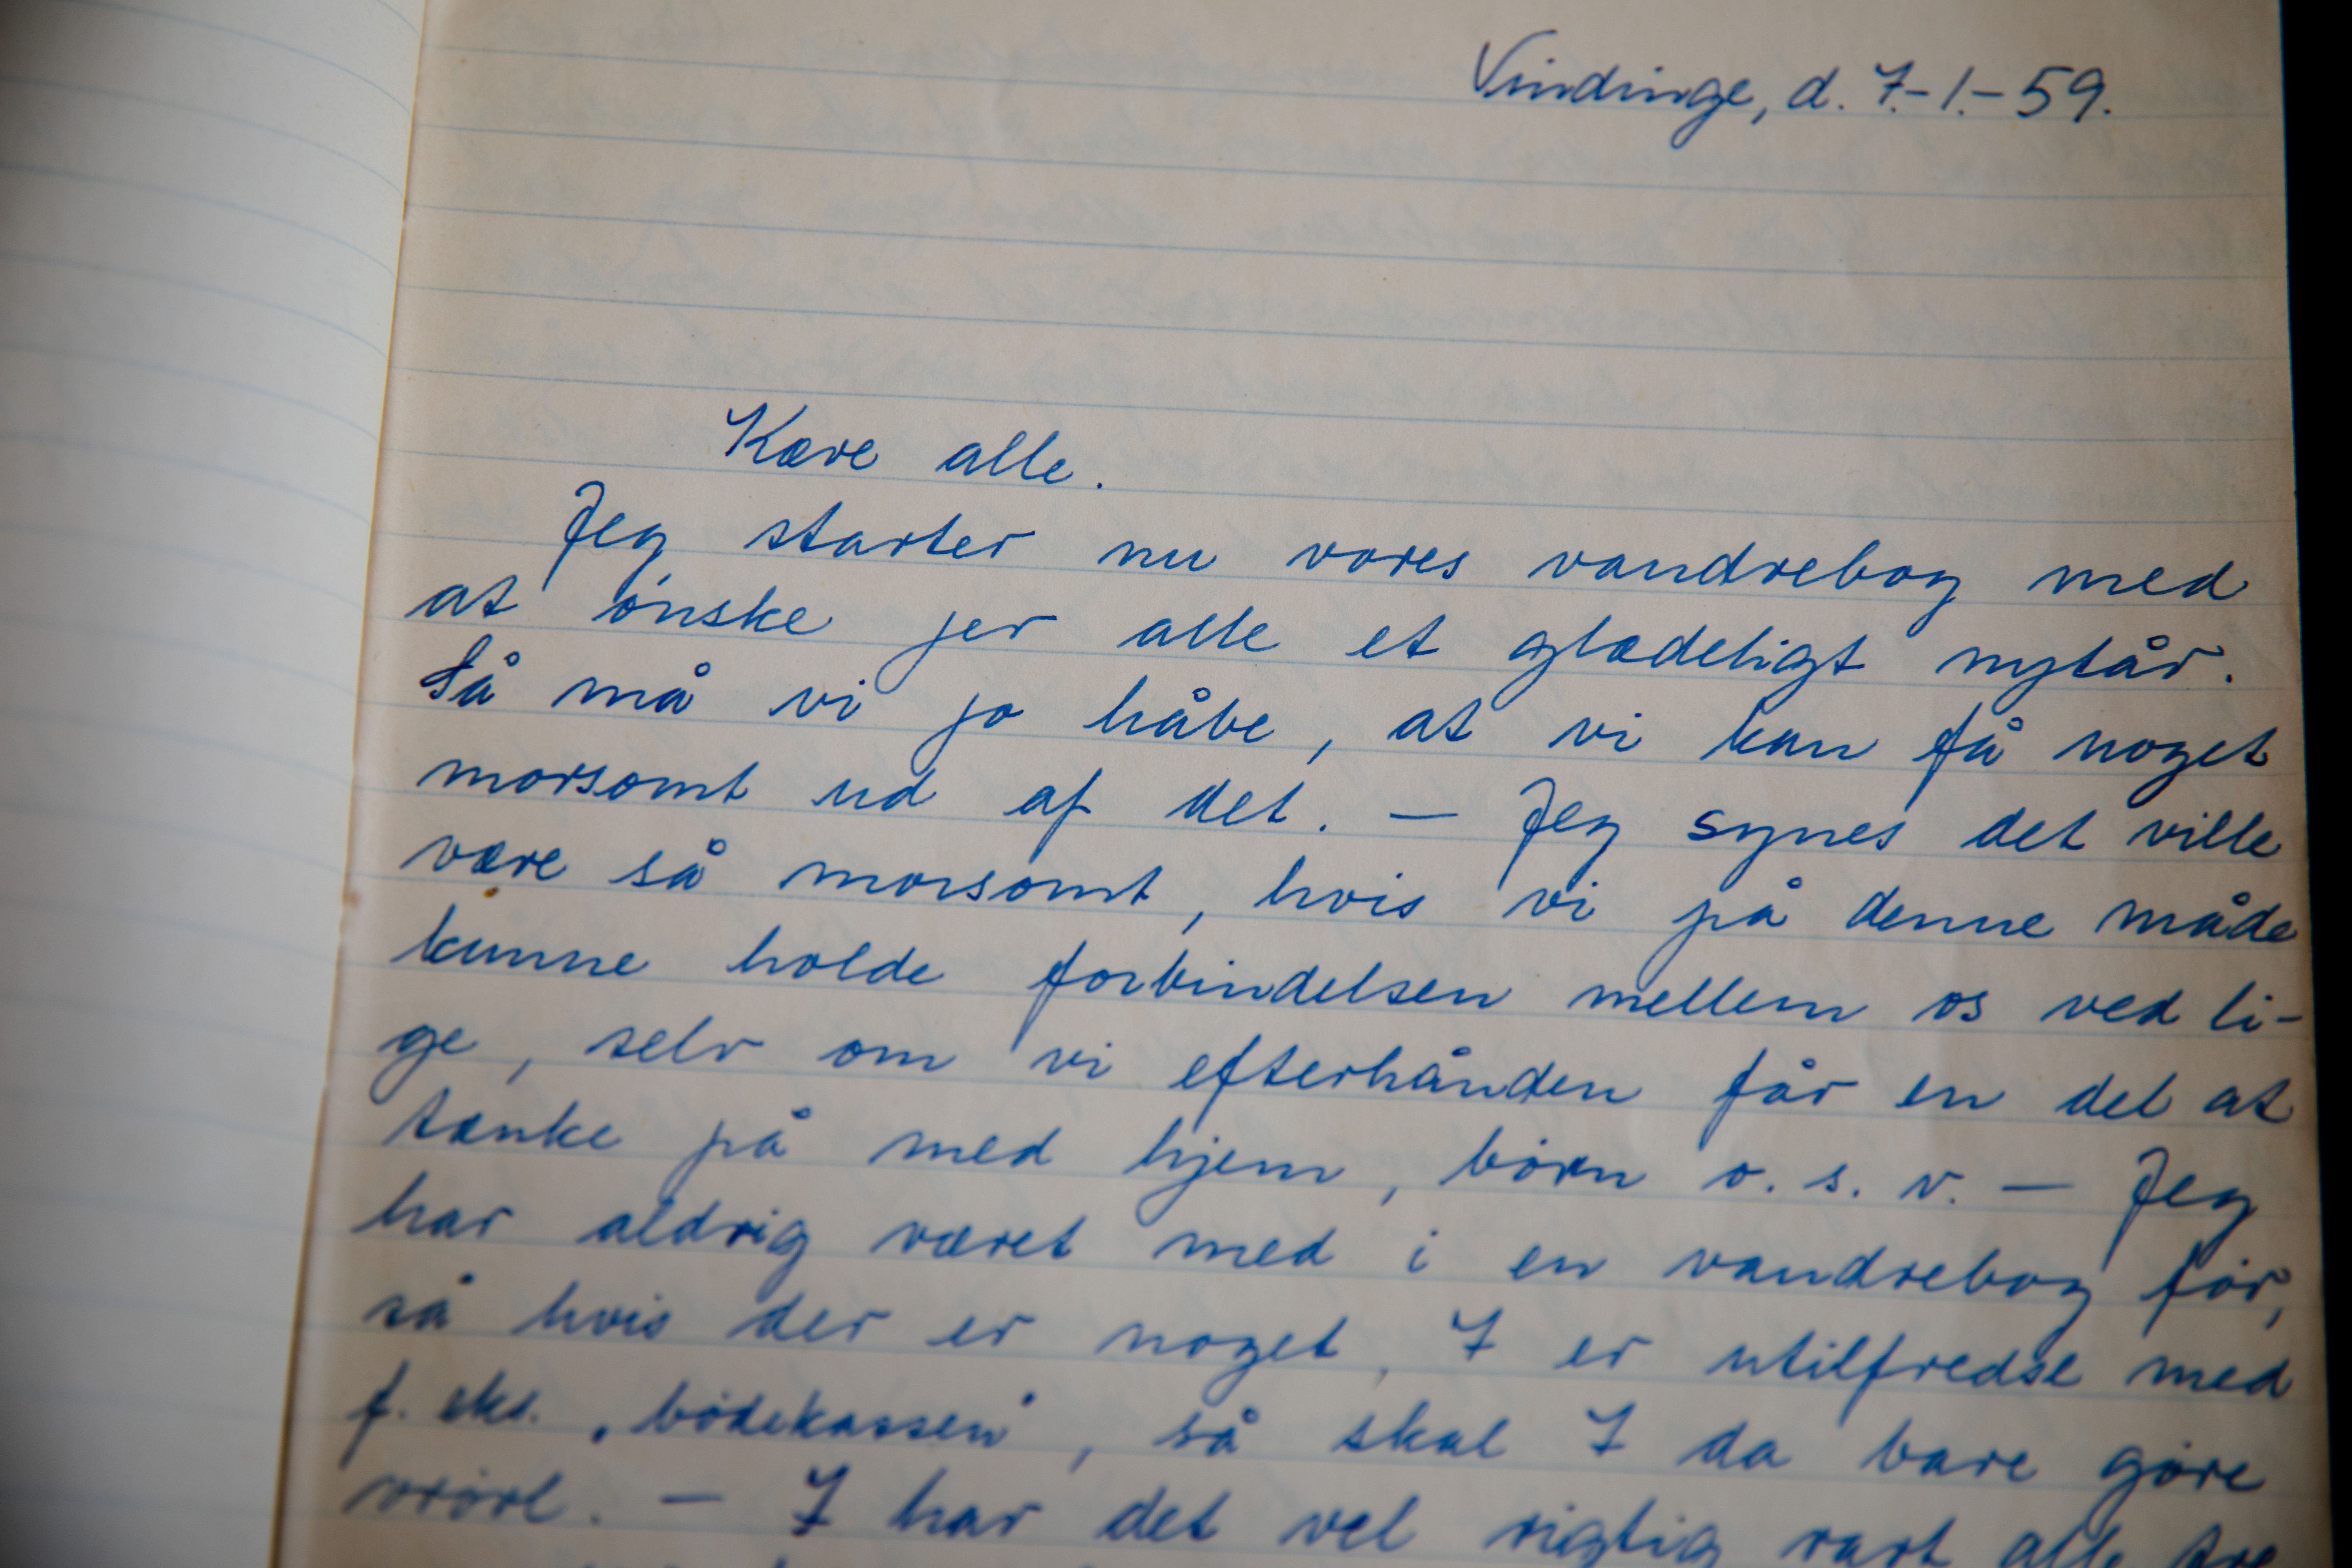 Vindinge, d. 7.-1.-59.
Kære alle.
Jeg starter nu vores vandrebog med
at ønske jer alle et glædeligt nytår.
Så må vi jo håbe, at vi kan få noget
morsomt ud af det. — Jeg synes det ville
være så morsomt, hvis vi på denne måde
kunne holde forbindelsen mellem os ved li-
ge, selv om vi efterhånden får en del at
tænke på med hjem, børn o. s. v. — Jeg
har aldrig været med i en vandrebog før,
så hvis der er noget, I er utilfredse med
f. eks. „bødekassen", så skal I da bare gøre
vrøvl. — I har det vel rigtig rart alle